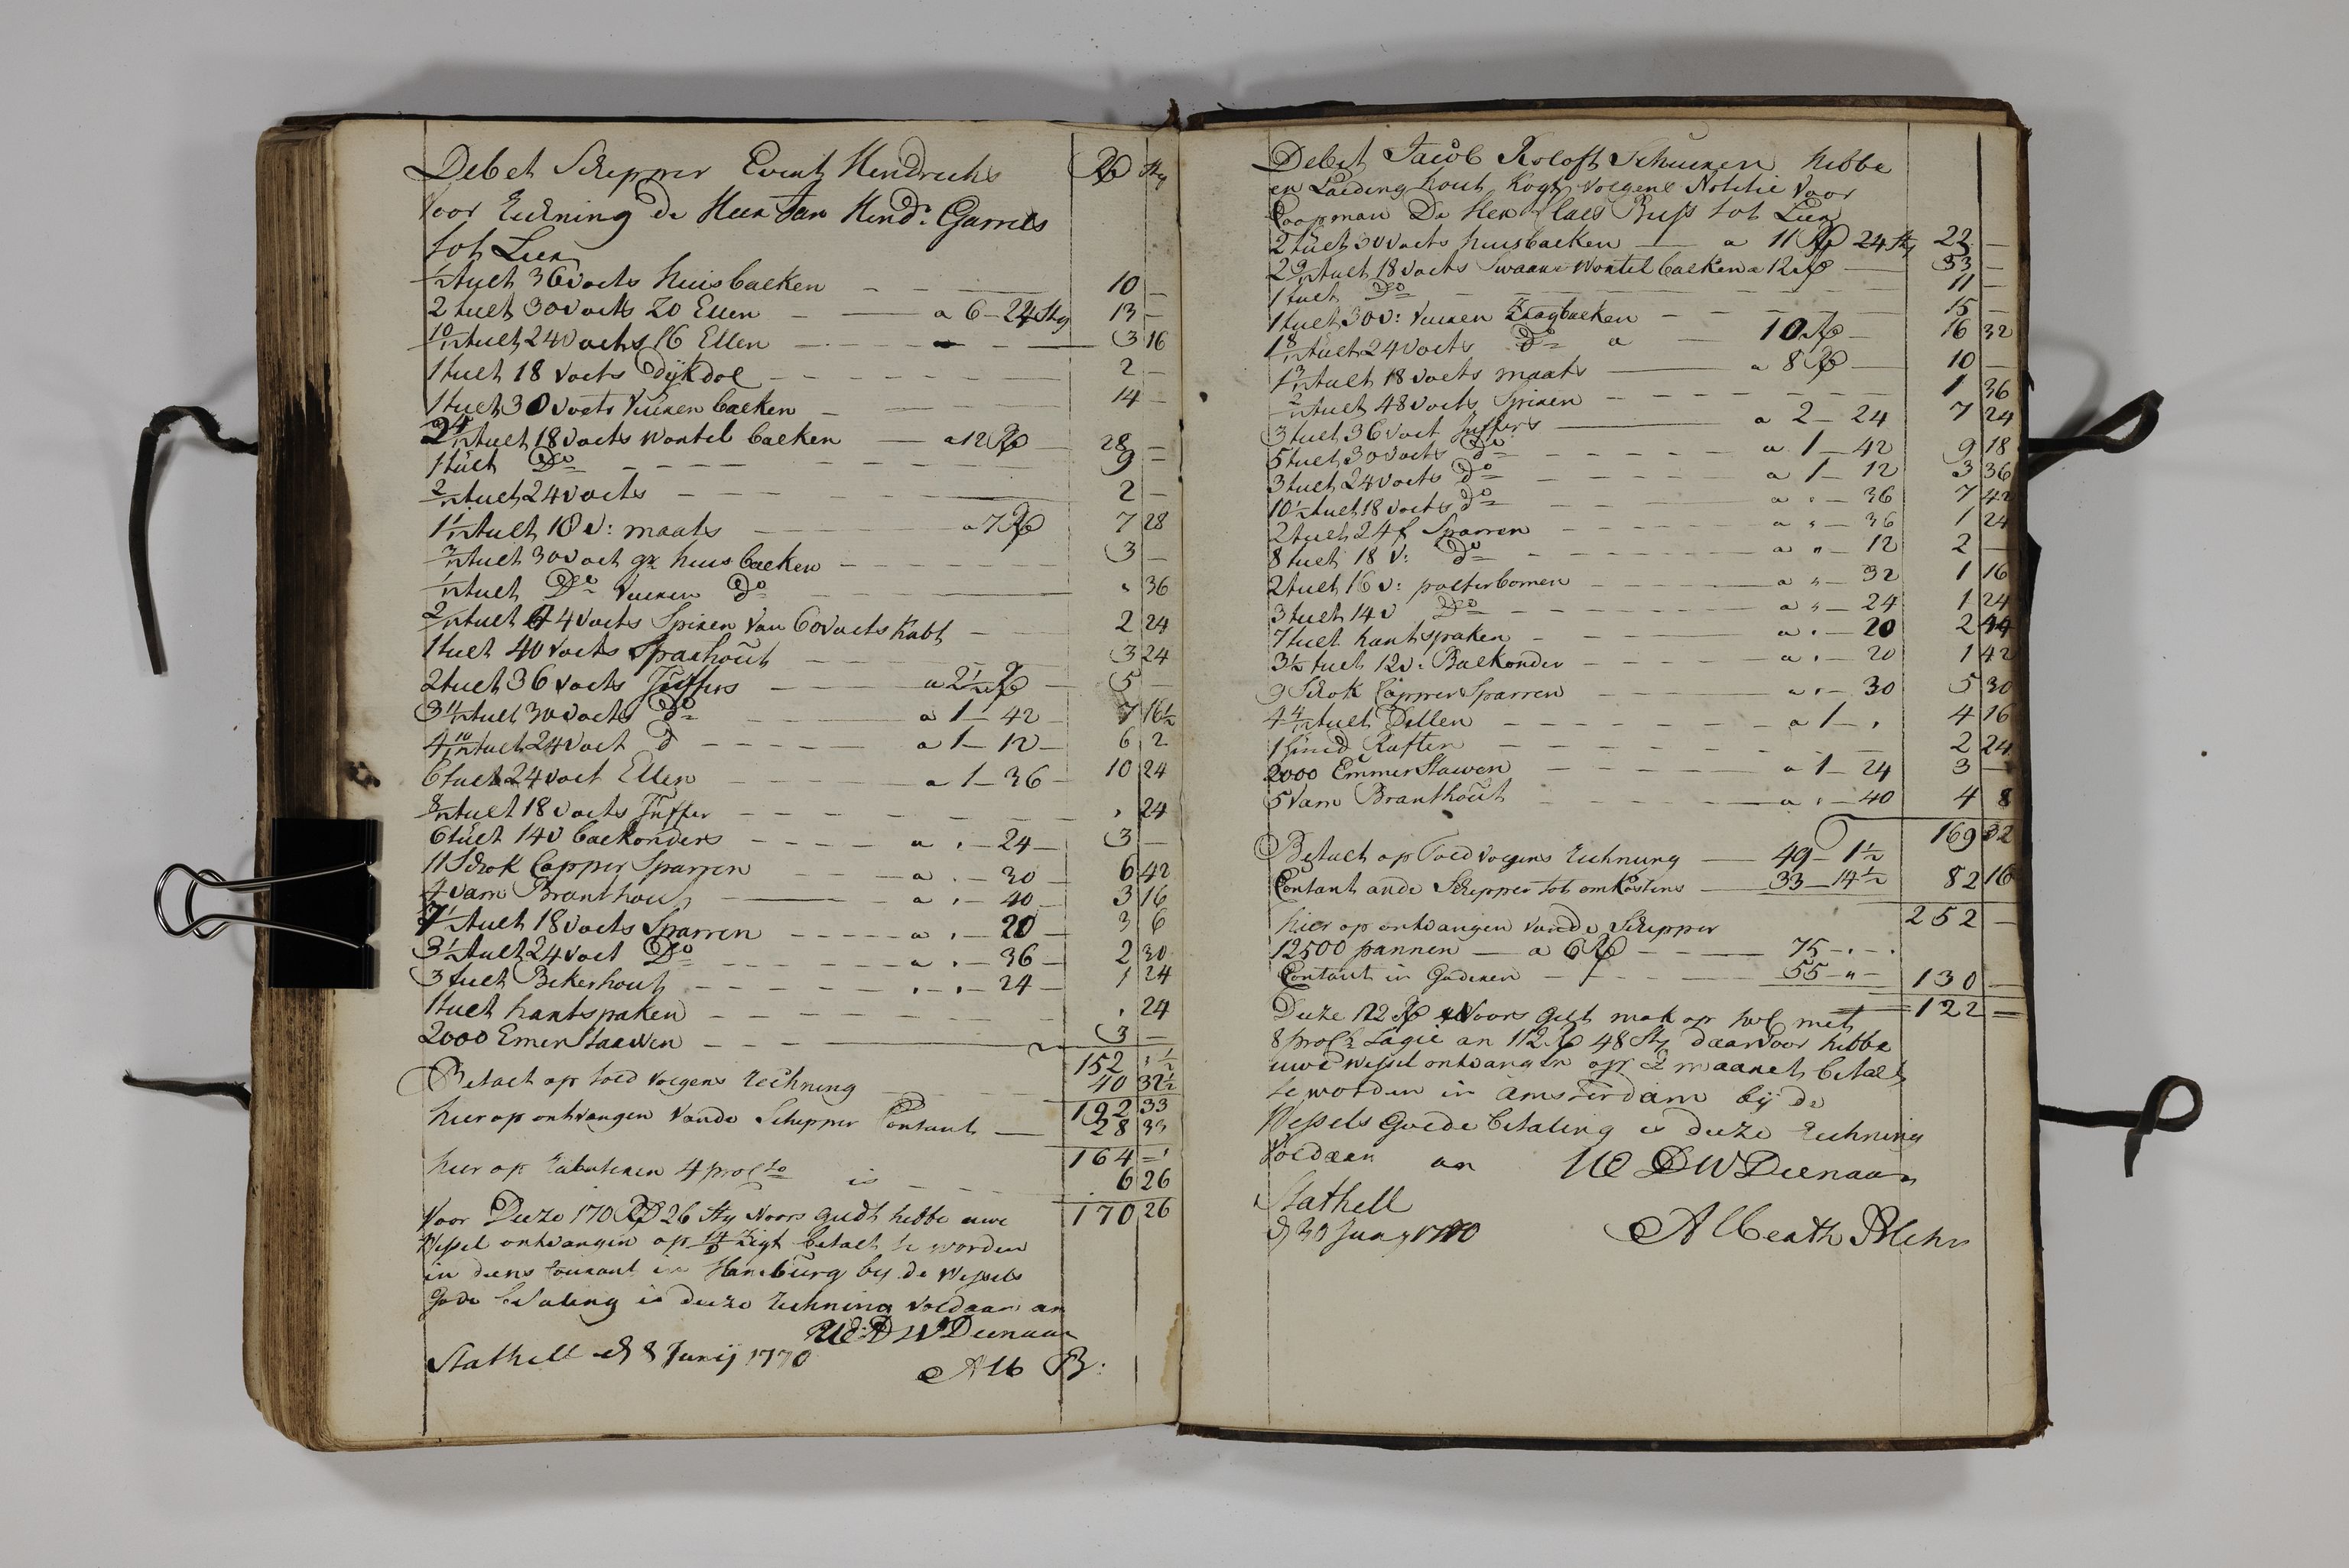 Debet Schipper Evert Hendrichs Rd Sty
Voor Reekning de Heer Jan Hend: Garrels
tot Leer
1/2 tuelt 36 voets huisbaelken 10 —
2 tuelt 30 voets 20 Ellen — a 6 — 24 Sty 13 —
10/12 tuelt 24 voets 16 Ellen 3 16
1 tuelt 18 voets Dijkdol 2 —
1 tuelt 30 voets Vuuren baelken 14 —
2 4/12 tuelt 18 voets wontel baelken — a 12 Rd 28 —
1 tuelt Do 9 —
2/12 tuelt 24 voets 2 —
1 1/12 tuelt 18 v: maats — a 7 Rd 7 28
3/12 tuelt 30 voet gr huisbaelken 3 —
1/12 tuelt Do Vuuren Do " 36
2/12 tuelt 44 voets Spiren van 60 voets kabt 2 24
1 tuelt 40 voets Sparhout 3 24
2 tuelt 36 voets Juffers — a 2 1/2 Rd 5 —
3 1/2 tuelt 30 voets do — a 1 — 42 7 16 1/2
4 10/12 tuelt 24 voet d — a 1 — 12 6 2
6 tuelt 24 voet Ellen — a 1 — 36 10 24
8/12 tuelt 18 voets Juffer " 24
6 tuelt 14 v baekonders — a " — 24 3 —
11 Schok Capper Sparren — a " — 30 6 42
4 vam Branthout — a " — 40 3 16
7 1/2 tuelt 18 voets Sparren — a " — 20 3 6
3 1/2 tuelt 24 voet Do — a " — 36 2 30
3 tuelt Bekerhout — " " — 24 1 24
1 tuelt hantspaken " 24
2000 Emer Staewen 3 —
152 " 1/2
Betaelt op toed volgens reichning 40 32 1/2
192 33
hier op ontvangen vande Schipper Contant — 28 33
164 — "
hier op 4 procto is 6 26
Voor Deeze 170 Rd 26 Sty Noors geldt hebbe uwe 170 26
Wessel ontvangen op zigt betaelt te worden
in deens Courant in Hamburg by de Wessels
gode betaling is deeze rechning voldaan an
UE: D W Deenaar
Stathell d 8 Junij 1770 Alb B:
Debet Jacob Roloft Schuuren hebbe
en Laeding hout Kogt volgens Notitie Voor
Coopman De Heer Claes Buss tot Leer
2 tuelt 30 voets huisbaelken — a 11 Rd 24 Sty 22 —
2 9/12 tuelt 18 voets Swaare wontel baelken a 12 Rd 33 —
1 tuelt Do 11 —
1 tuelt 30 v: Vuuren Zaagbaelken 15 —
1 8/12 tuelt 24 voets do a — 10 Rd 16 32
1 3/12 tuelt 18 voets maats — a 8 Rd 10 —
2/12 tuelt 48 voets Spiren 1 36
3 tuelt 36 voet Juffers — a 2 — 24 7 24
5 tuelt 30 voets do — a 1 — 42 9 18
3 tuelt 24 voets Do — a 1 — 12 3 36
10 1/2 tuelt 18 voets do — a " — 36 7 42
2 tuelt 24 f Sparren — a " — 36 1 24
8 tuelt 18 v: do — a " — 12 2 —
2 tuelt 16 v: polterbomen — a " — 32 1 16
3 tuelt 14 v Do — a " — 24 1 24
7 tuelt hantspaken — a " — 20 2 44
3 1/2 tuelt 12 v: Baelkonder — a " — 20 1 42
9 Schok Capper Sparren — a " — 30 5 30
4 4/12 tuelt Dellen — a 1 — " 4 16
1 Rafter 2 24
2000 Emmer Stawen — a 1 — 24 3 —
5 Vam Branthout — a " — 40 4 8
169 32
Betaelt op Toed volgens rechnung — 49 — 1 1/2
Contant ande Schipper tot omkostens — 33 — 14 1/2 82 16
252 —
hier op ontvangen vande Schipper
12500 pannen — a 6 Rd — 75 — " — "
Contant in — 55 — " — 130 —
Deeze 122 Rd Noors gelt mak op hol met 122 =
8 proct Lagie an 112 Rd 48 Sty daarvoor hebbe
uwe wessel ontvangen op 2 maanet betalt
te worden in Amsterdam bij de
Wessels goede betaling is deeze rechning
voldaan an UE D W Deenaar
Stathell
d 30 Juny 1770 Alberth